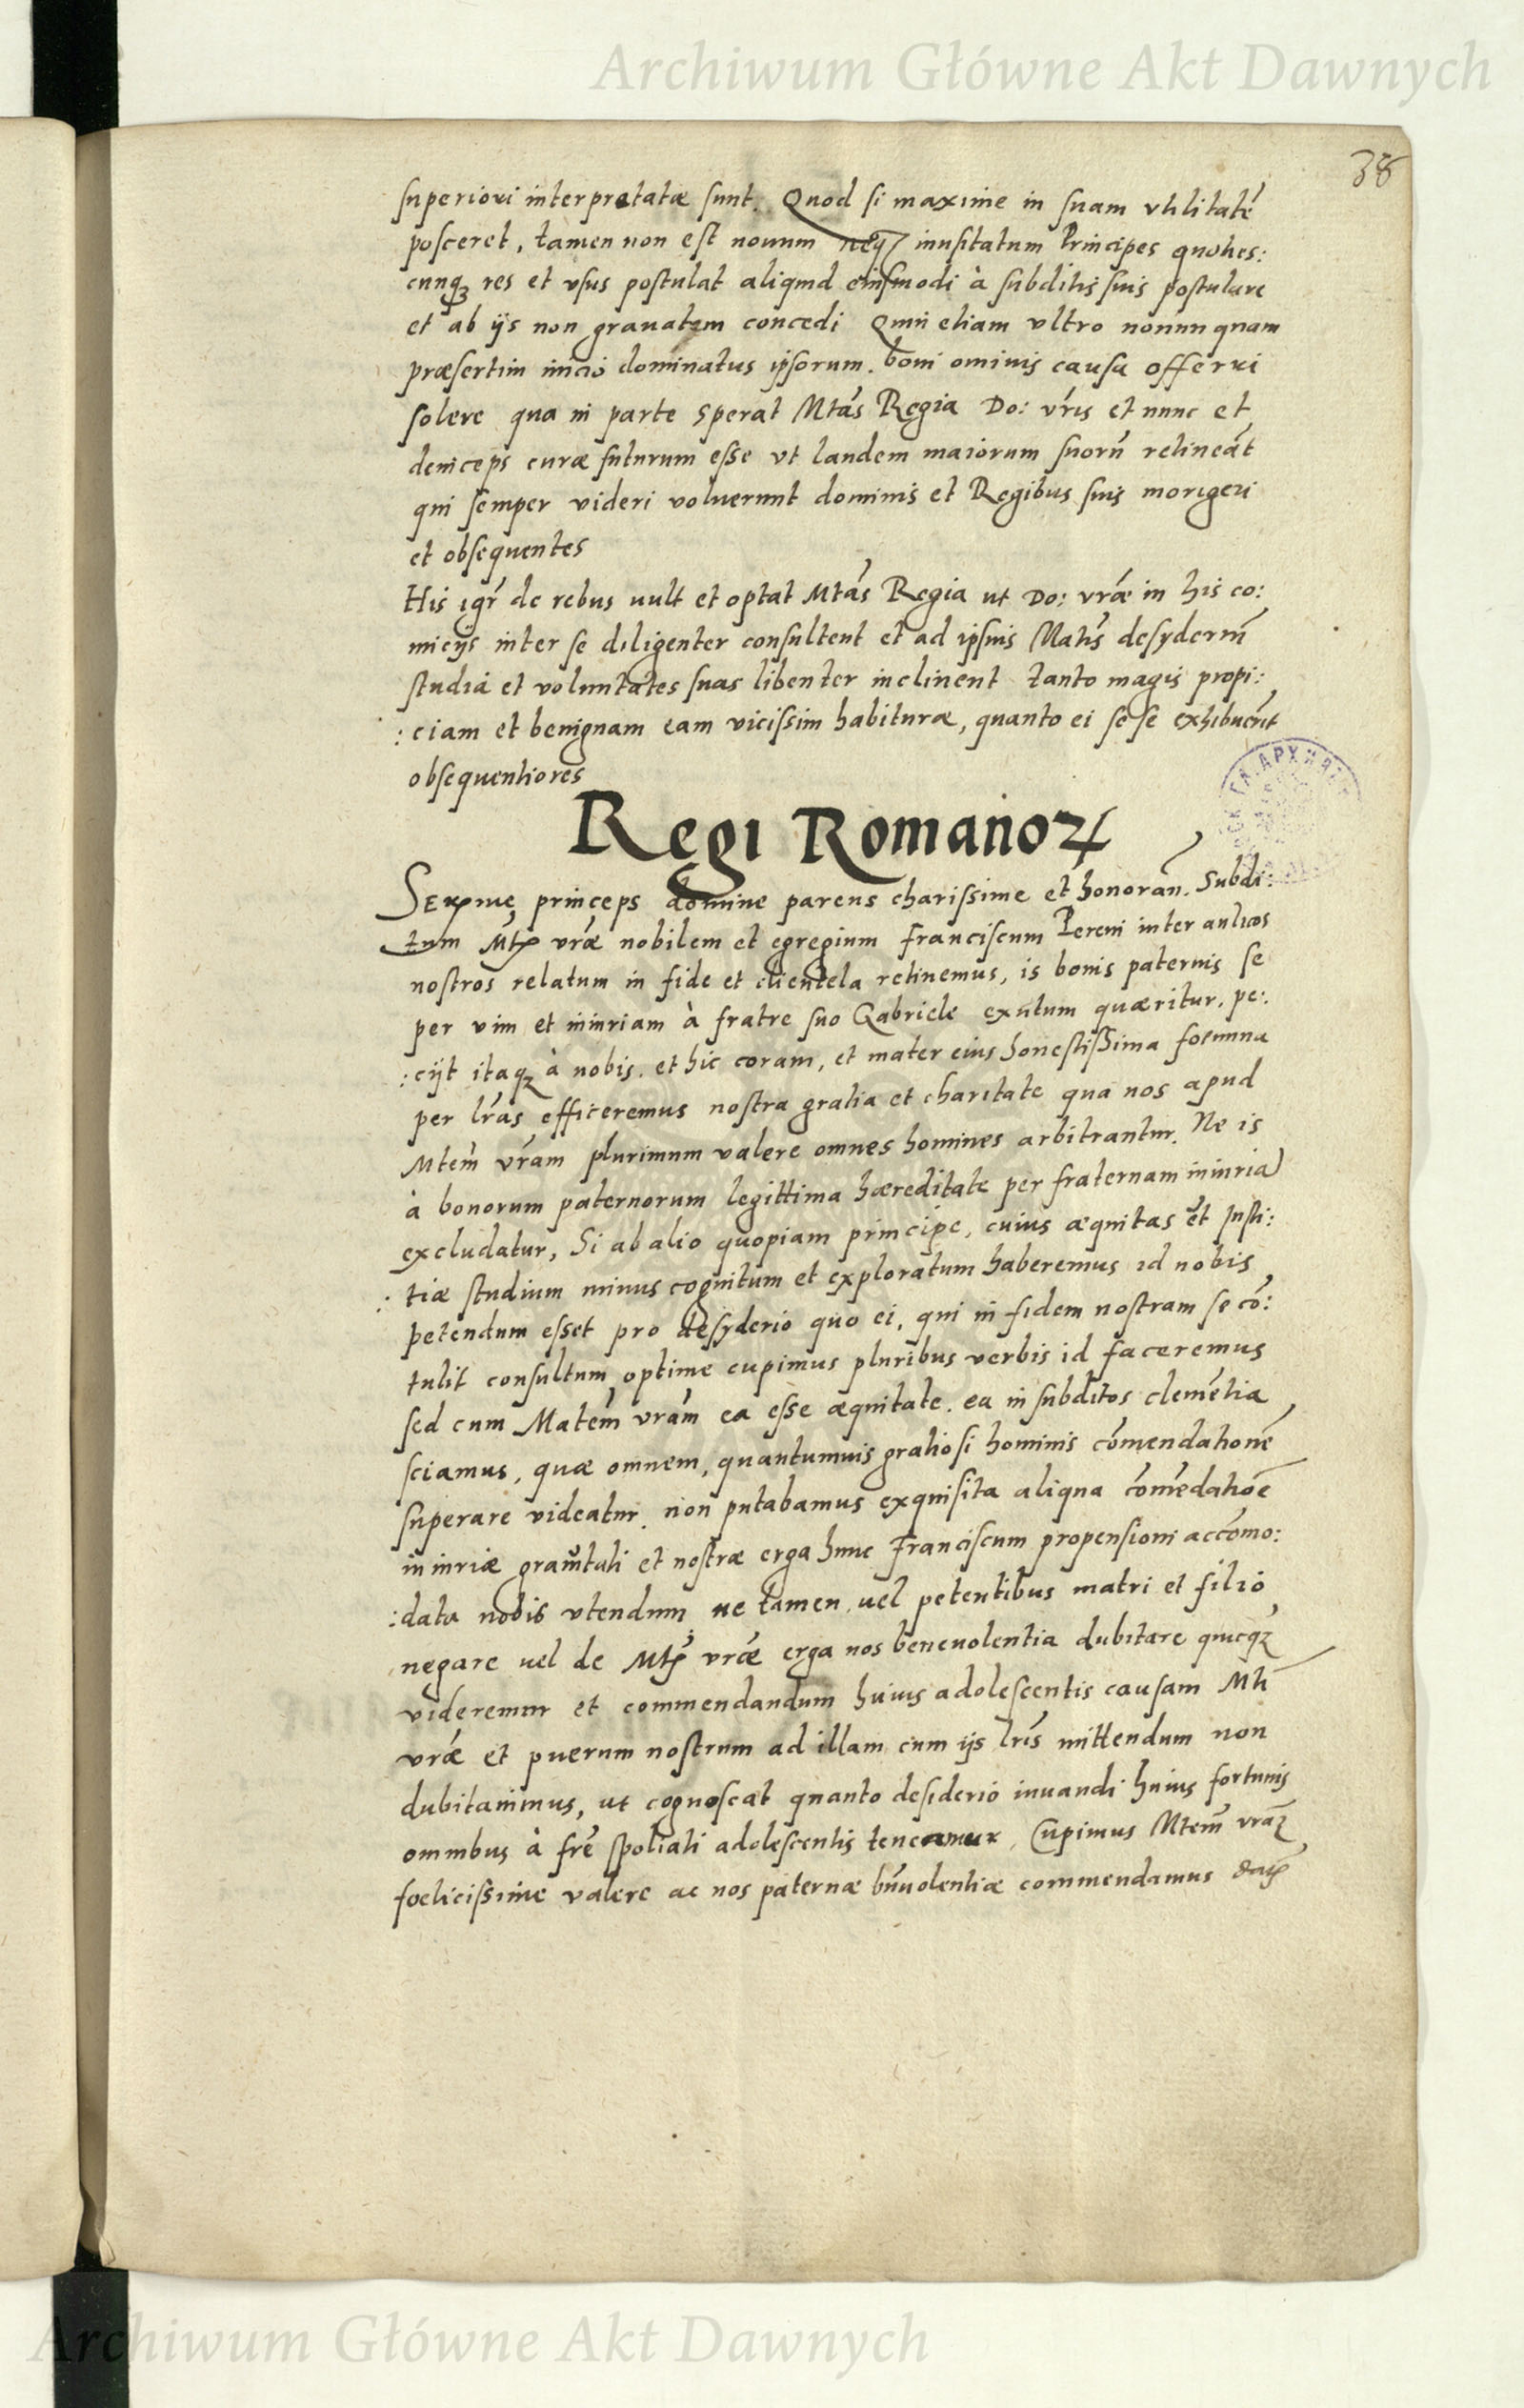 Archiwum Główne Akt Dawnych
38
superiori interpretatæ sunt. Quod si maxime in suam vtilitatē
posceret, tamen non est nouum neqꝫ inusitatum Principes quoties:
cunqꝫ res et vsus postulat aliquid eiusmodi à subditis suis postulare
et ab ijs non grauatem concedi Quin etiam vltro nonnunquam
præsertim inicio dominatus ipsorum. boni ominis causa offerri
solere qua in parte sperat Mtas Regia Do: vris et nunc et
deinceps curæ futurum esse vt laudem maiorum suorū retineāt
qui semper videri voluerunt dominis et Regibus suis morigeri
et obsequentes
His igr de rebus uult et optat Mtas Regia ut Do: vræ in his co:
micijs inter se diligenter consultent et ad ipsius Matis desyderiū
studia et voluntates suas libenter inclinent tanto magis propi:
:ciam et benignam eam vicissim habituræ, quanto ei sese exhibuerīt
obsequentiores
Regi Romanoꝝ
Serᵐᵉ princeps domine parens charissime et honorān. Subdi:
tum Mtis vræ nobilem et egregium Franciscum Pereni inter aulicos
nostros relatum in fide et clientela retinemus, is bonis paternis se
per vim et iniuriam à fratre suo Gabriele exutum quæritur. pe:
:cijt itaqꝫ à nobis. et hic coram, et mater eius honestissima foemina
per lras efficeremus nostra gratia et charitate qua nos apud
Mtem vram plurimum valere omnes homines arbitrantur. Ne is
à bonorum paternorum legittima hæreditate per fraternam iniuriā
excludatur, Si ab alio quopiam principe, cuius æquitas et Justi:
:tiæ studium minus cognitum et exploratum haberemus id nobis
petendum esset pro desyderio quo ei, qui in fidem nostram se cō:
tulit consultum optime cupimus pluribus verbis id faceremus
sed cum Matem vram ea esse æquitate. ea in subditos clemētia
sciamus, quæ omnem, quantumuis gratiosi hominis cōmendationē
superare videatur. non putabamus exquisita aliqua cōmēdatiōe
iniuriæ grauitati et nostræ erga hunc Franciscum propensioni accōmo:
:data nobis vtendum ne tamen uel petentibus matri et filio
negare uel de Mtis vræ erga nos beneuolentia dubitare quicqꝫ
videremur et commendandum huius adolescentis causam Mti
vræ et puerum nostrum ad illam cum ijs lris mittendum non
dubitauimus, ut cognoscat quanto desiderio iuuandi huius fortunis
omnibus à fre spoliati adolescentis teneamur. Cupimus Mtem vram
foelicissime valere ac nos paternæ bnuolentiæ commendamus
Archiwum Główne Akt Dawnych